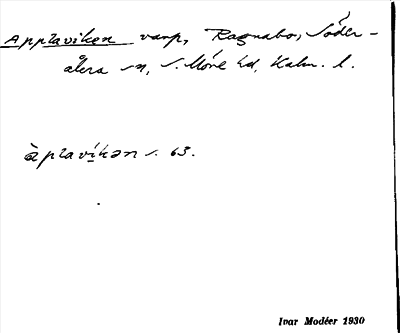 Appraviken varp, Ragnabo, Söder-
åkra sn, S. Möre hd, Kalm. l.
àpravíkən s. 63.
Ivar Modéer 1930